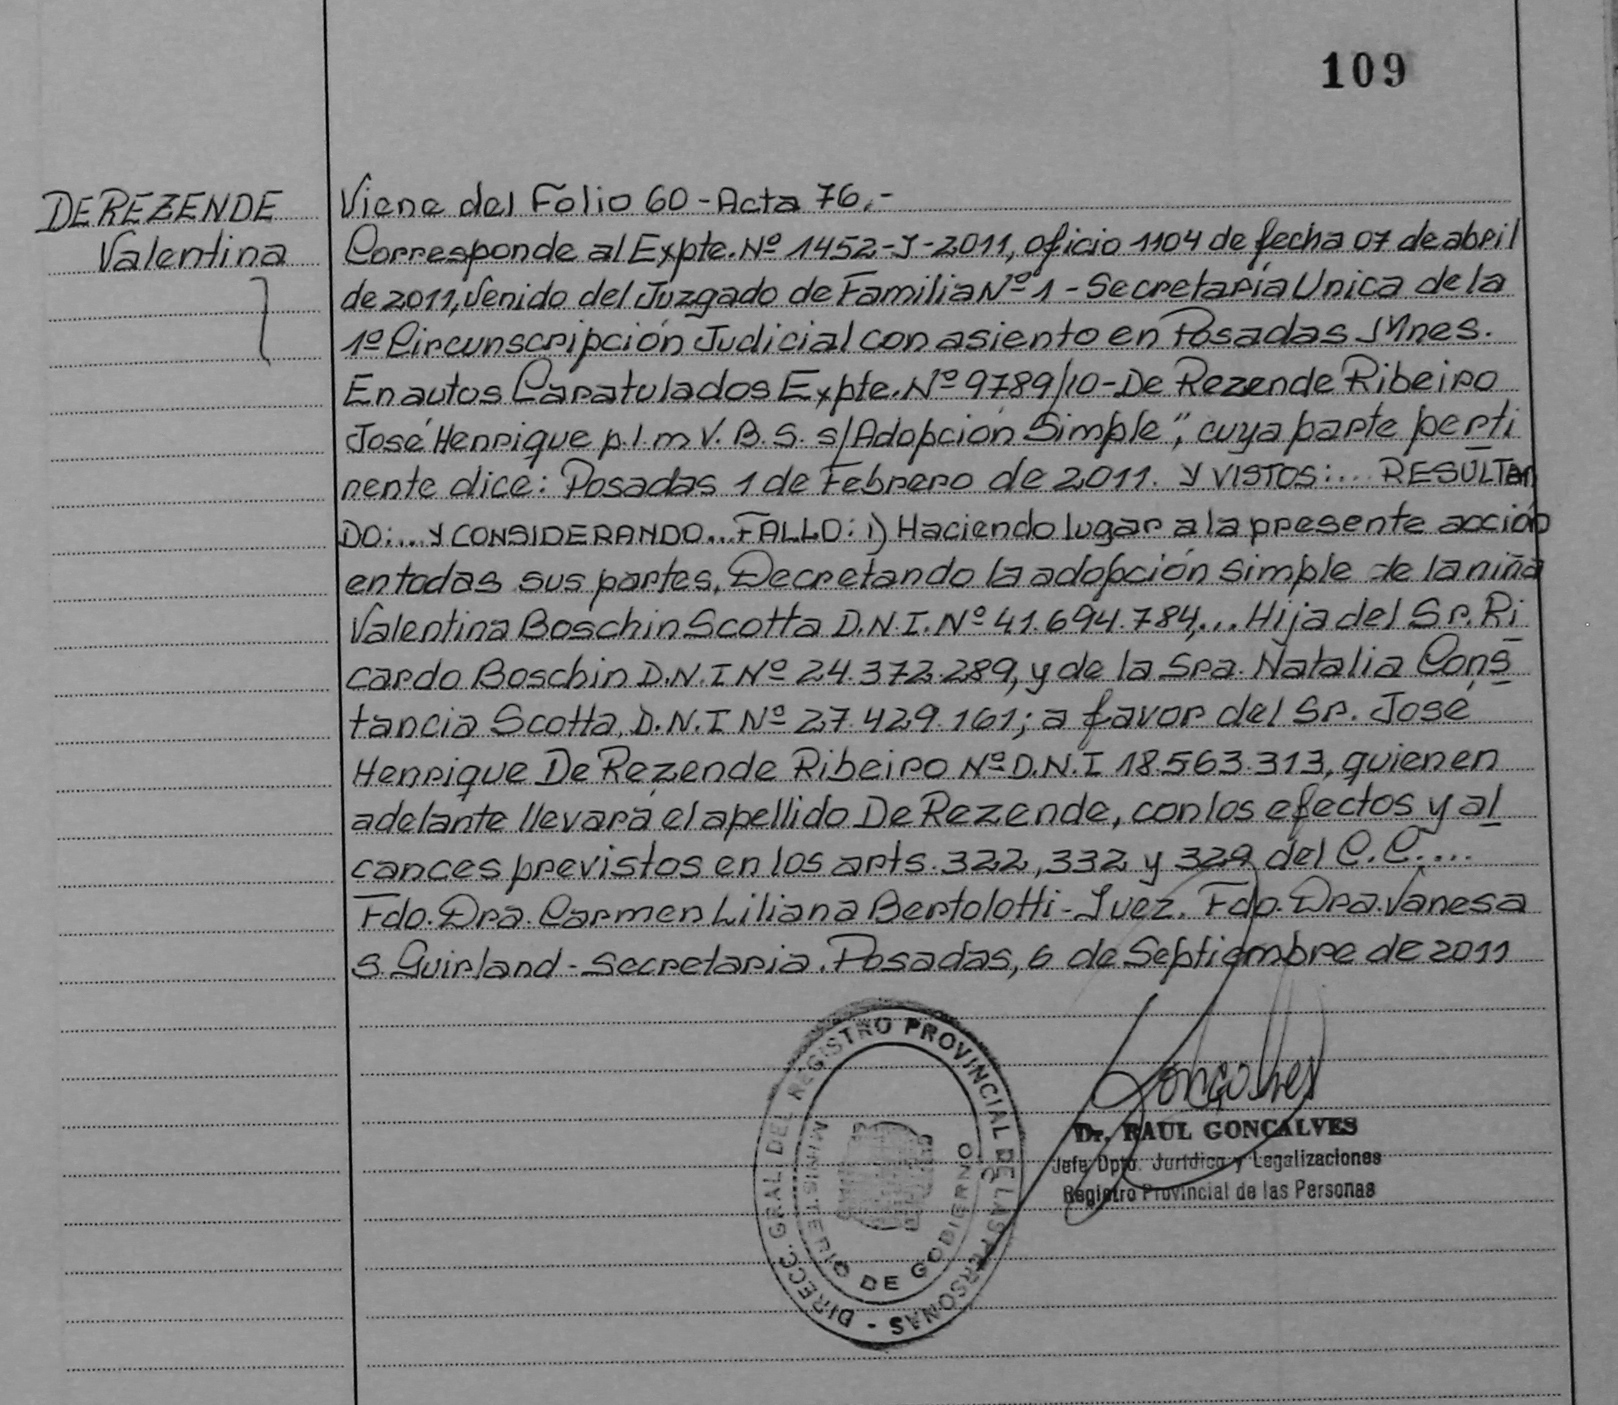 109
DE REZENDE
Valentina
Viene del Folio 60 - Acta 76.-
Corresponde al Expte. Nº 1452-J-2011, oficio 1104 de fecha 07 de abril
de 2011, venido del Juzgado de Familia Nº 1 - Secretaría Unica de la
1º Circunscripción Judicial con asiento en Posadas Mnes.
En autos Caratulados Expte. Nº 9789/10-De Rezende Ribeiro
José Henrique p.l.m V. B. S. s/Adopción Simple", cuya parte perti
nente dice: Posadas 1 de Febrero de 2011. Y VISTOS:... RESULTAN
DO:... Y CONSIDERANDO... FALLO: 1) Haciendo lugar a la presente acción
en todas sus partes, Decretando la adopción simple de la niña
Valentina Boschin Scotta D.N.I. Nº 41.694.784,... Hija del Sr. Ri
cardo Boschin D.N.I Nº 24.372.289, y de la Sra. Natalia Cons
tancia Scotta, D.N.I Nº 27.429.161; a favor del Sr. José
Henrique De Rezende Ribeiro Nº D.N.I 18.563.313, quien en
adelante llevará el apellido De Rezende, con los efectos y al
cances previstos en los arts. 322, 332 y 329 del C.C....
Fdo. Dra. Carmen Liliana Bertolotti - Juez. Fdo. Dra. Vanesa
S. Guirland - Secretaria. Posadas, 6 de Septiembre de 2011
DIRECC. GRAL. DEL REGISTRO PROVINCIAL DE LAS PERSONAS -
MINISTERIO DE GOBIERNO
Dr. RAUL GONCALVES
Jefe Dpto. Jurídico y Legalizaciones
Registro Provincial de las Personas